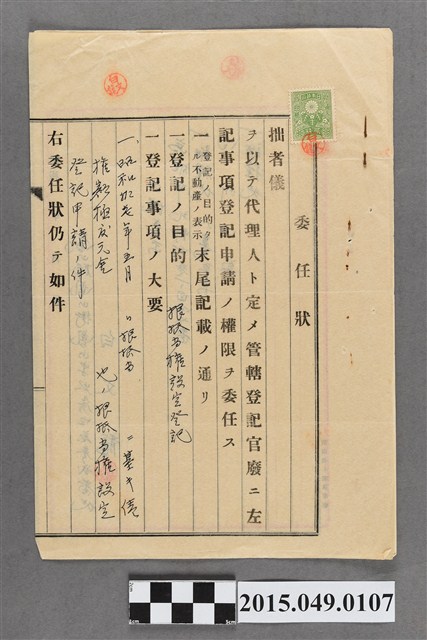 委任狀
拙者儀
ヲ以テ代理人ト定メ管轄登記官廢ニ左
記事項登記申請ノ權限ヲ委任ス
一 登記ノ目的タル不動産ノ表示 末尾記載ノ通リ
一 登記ノ目的 根抵当權設定登記
一 登記事項ノ大要
一、昭和 年五月 日根抵当 ニ基キ債
權額極度元金 也ノ根抵当權設定
登記申請ノ件
右委任狀仍テ如件
2015.049.0107